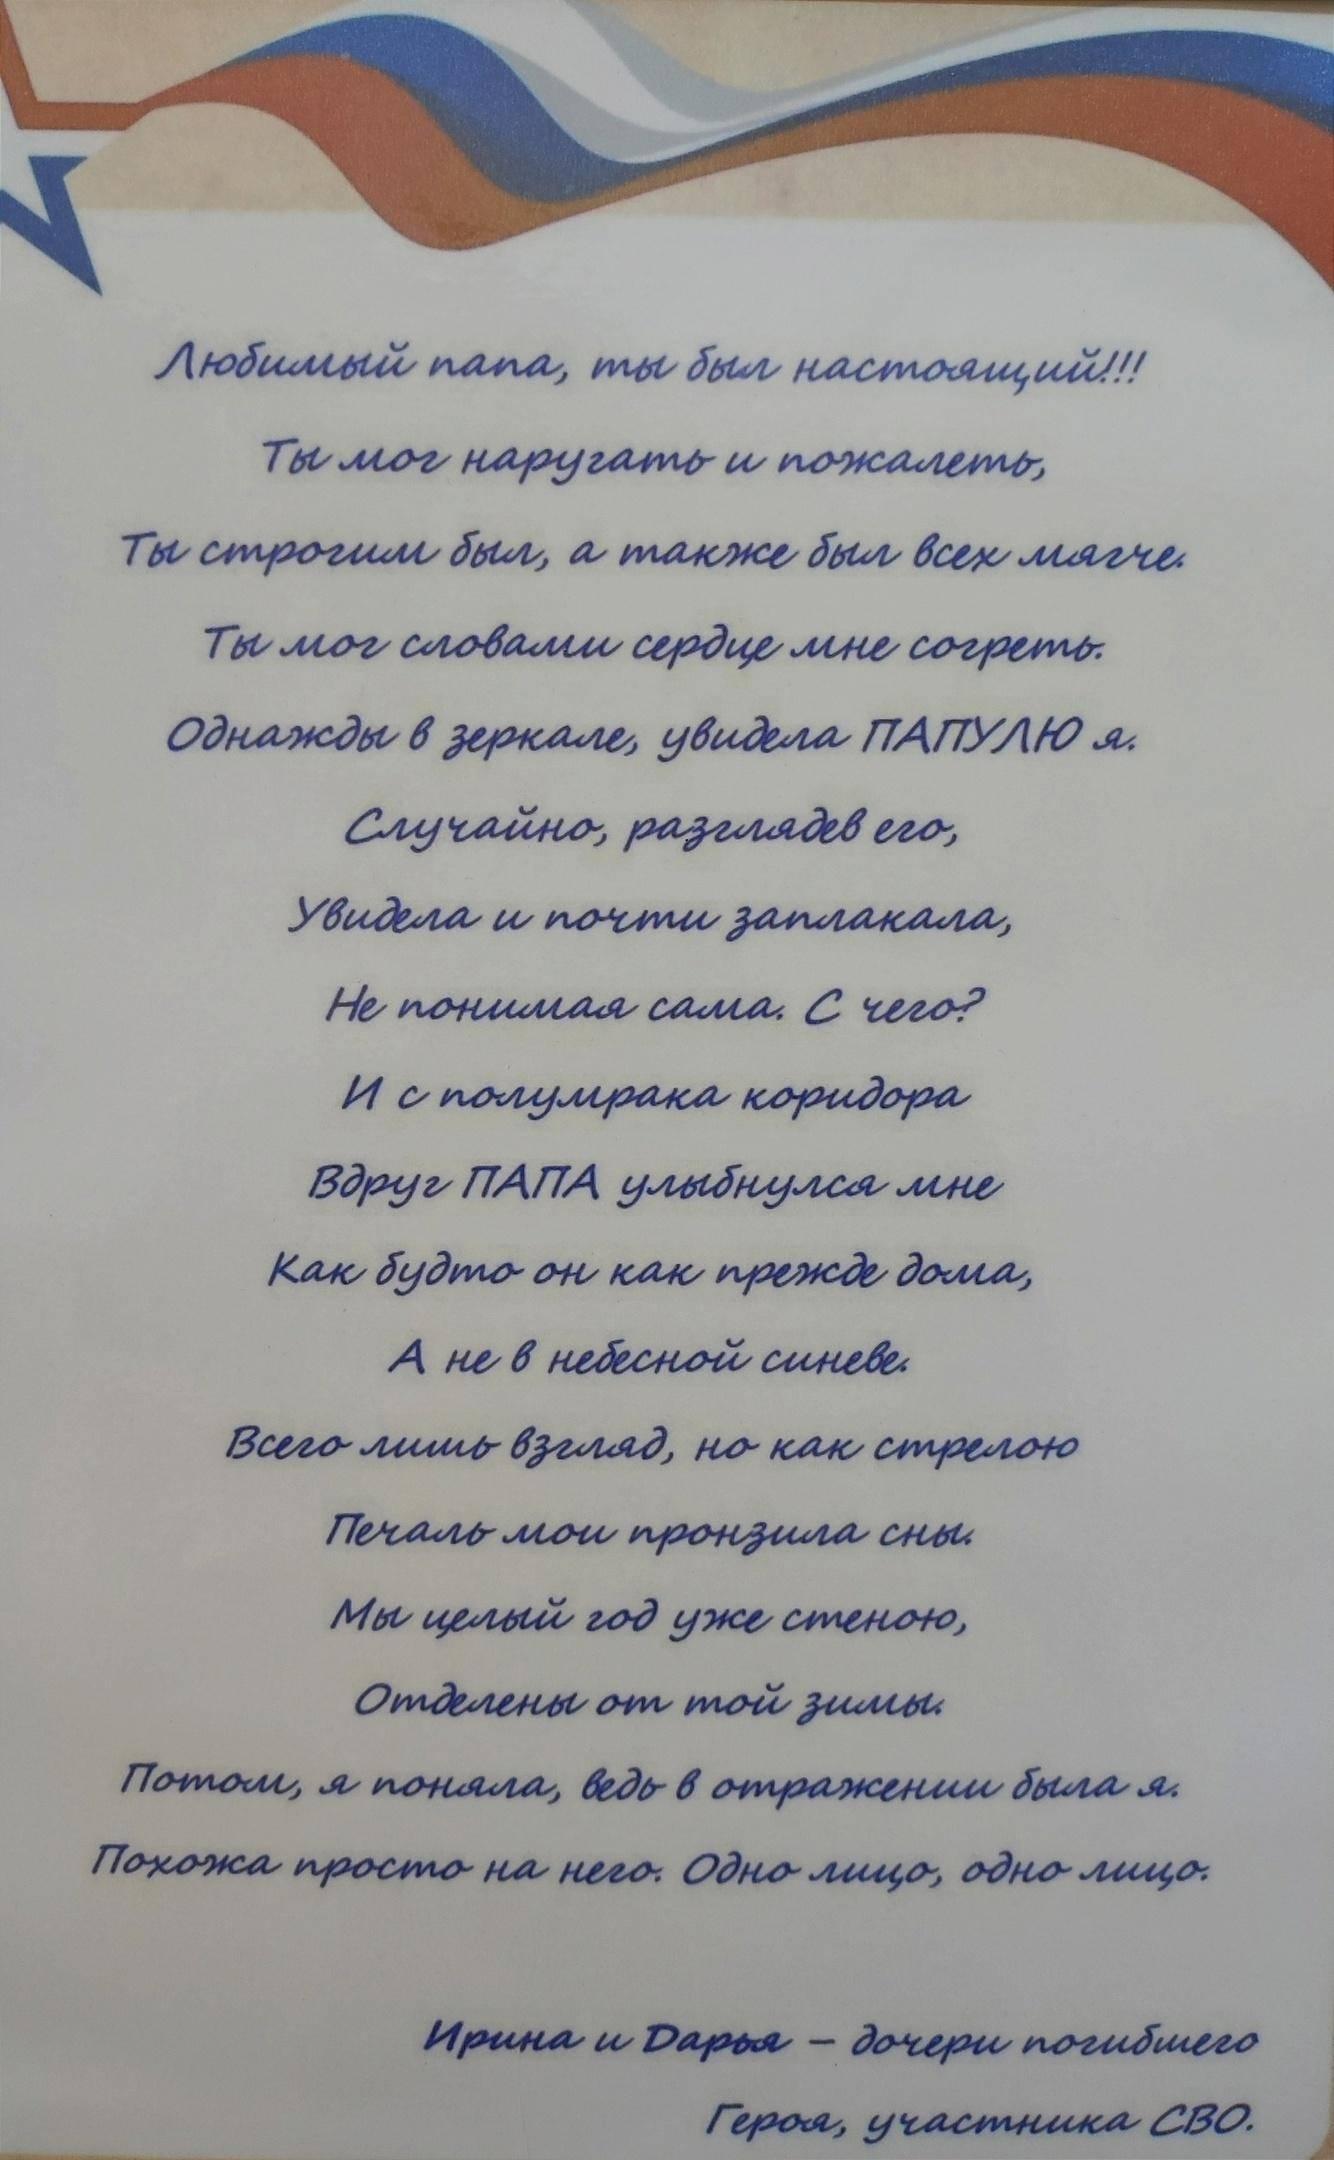 Любимый папа, ты был настоящий!!!
Ты мог наругать и пожалеть,
Ты строгим был, а также был всех мягче.
Ты мог словами сердце мне согреть.
Однажды в зеркале, увидела ПАПУЛЮ я.
Случайно, разглядев его,
Увидела и почти заплакала,
Не понимая сама. С чего?
И с полумрака коридора
Вдруг ПАПА улыбнулся мне
Как будто он как прежде дома,
А не в небесной синеве.
Всего лишь взгляд, но как стрелою
Печаль мои пронзила сны.
Мы целый год уже стеною,
Отделены от той зимы.
Потом, я поняла, ведь в отражении была я.
Похожа просто на него. Одно лицо, одно лицо.
Ирина и Дарья – дочери погибшего
Героя, участника СВО.